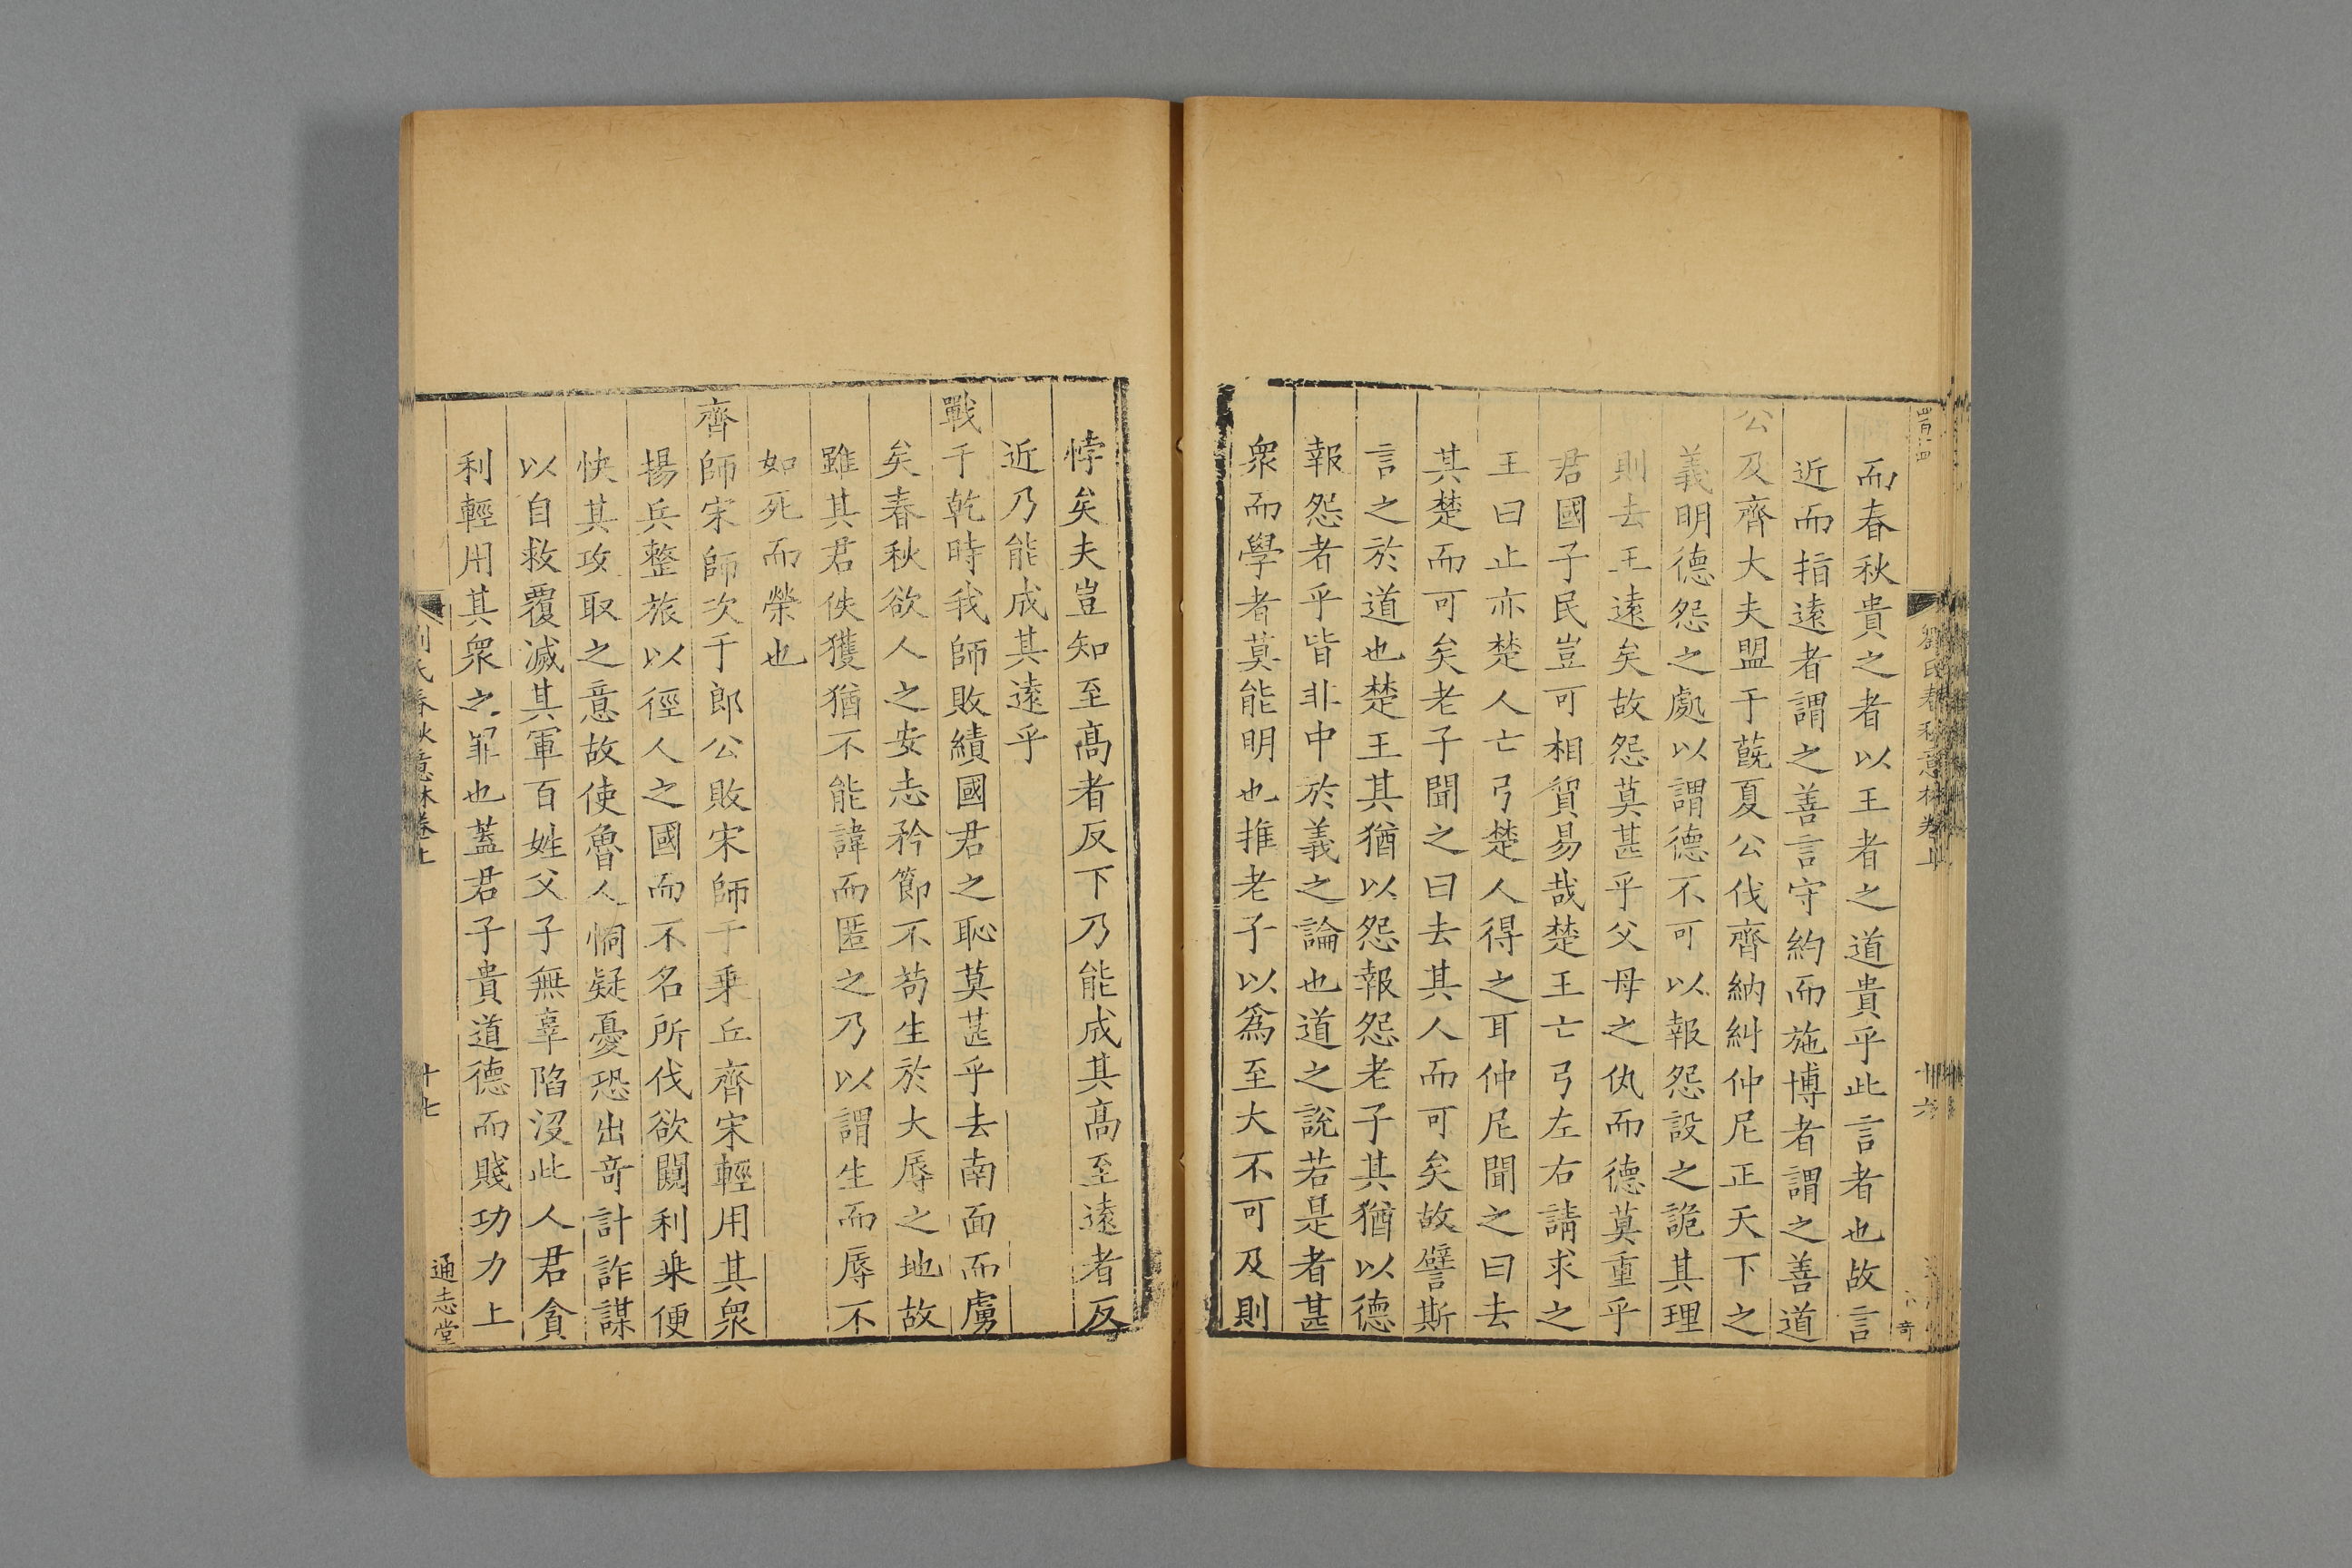 劉氏春秋意林卷上
十六
而春秋貴之者以王者之道貴乎此言者也故言
近而指遠者謂之善言守約而施博者謂之善道
公及齊大夫盟于蔇夏公伐齊納糾仲尼正天下之
義明德怨之處以謂德不可以報怨設之詭其理
則去王遠矣故怨莫甚乎父母之仇而德莫重乎
君國子民豈可相貿易哉楚王亡弓左右請求之
王曰止亦楚人亡弓楚人得之耳仲尼聞之曰去
其楚而可矣老子聞之曰去其人而可矣故譬斯
言之於道也楚王其猶以怨報怨老子其猶以德
報怨者乎皆非中於義之論也道之說若是者甚
衆而學者莫能明也推老子以爲至大不可及則
悖矣夫豈知至高者反下乃能成其高至遠者反
近乃能成其遠乎
戰于乾時我師敗績國君之恥莫甚乎去南面而虜
矣春秋欲人之安志矜節不苟生於大辱之地故
雖其君佚獲猶不能諱而匿之乃以謂生而辱不
如死而榮也
齊師宋師次于郎公敗宋師于乘丘齊宋輕用其衆
揚兵整旅以徑人之國而不名所伐欲闕利乘便
快其攻取之意故使魯人恫疑憂恐出奇計詐謀
以自救覆滅其軍百姓父子無辜陷沒此人君貪
利輕用其衆之罪也蓋君子貴道德而賤功力上
劉氏春秋意林卷上
十七
通志堂